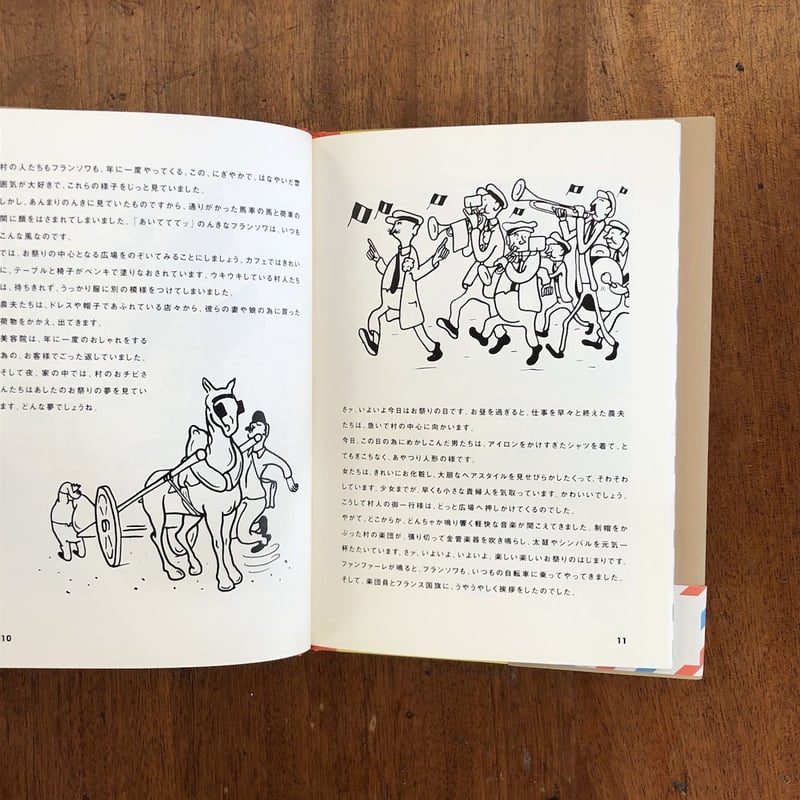 村の人たちもフランソワも、年に一度やってくる、この、にぎやかで、はなやいだ雰
囲気が大好きで、これらの様子をじっと見ていました。
しかし、あんまりのんきに見ていたものですから、通りがかった馬車の馬と荷車の
間に顔をはさまれてしまいました。「あいてててッ」のんきなフランソワは、いつも
こんな風なのです。
では、お祭りの中心となる広場をのぞいてみることにしましょう。カフェではきれい
に、テーブルと椅子がペンキで塗りなおされています。ウキウキしている村人たち
は、待ちきれず、うっかり服に別の模様をつけてしまいました。
農夫たちは、ドレスや帽子であふれている店々から、彼らの妻や娘の為に買った
荷物をかかえ、出てきます。
美容院は、年に一度のおしゃれをする
為の、お客様でごった返していました。
そして夜。家の中では、村のおチビさ
んたちはあしたのお祭りの夢を見てい
ます。どんな夢でしょうね。
10
さァ、いよいよ今日はお祭りの日です。お昼を過ぎると、仕事を早々と終えた農夫
たちは、急いで村の中心に向かいます。
今日、この日の為にめかしこんだ男たちは、アイロンをかけすぎたシャツを着て、と
てもぎこちなく、あやつり人形の様です。
女たちは、きれいにお化粧し、大胆なヘアスタイルを見せびらかしたくって、そわそわ
しています。少女までが、早くも小さな貴婦人を気取っています。かわいいでしょう。
こうして村人の御一行様は、どっと広場へ押しかけてくるのでした。
やがて、どこからか、どんちゃか鳴り響く軽快な音楽が聞こえてきました。制帽をか
ぶった村の楽団が、張り切って金管楽器を吹き鳴らし、太鼓やシンバルを元気一
杯たたいています。さァ、いよいよ、いよいよ、楽しい楽しいお祭りのはじまりです。
ファンファーレが鳴ると、フランソワも、いつもの自転車に乗ってやってきました。
そして、楽団員とフランス国旗に、うやうやしく挨拶をしたのでした。
11